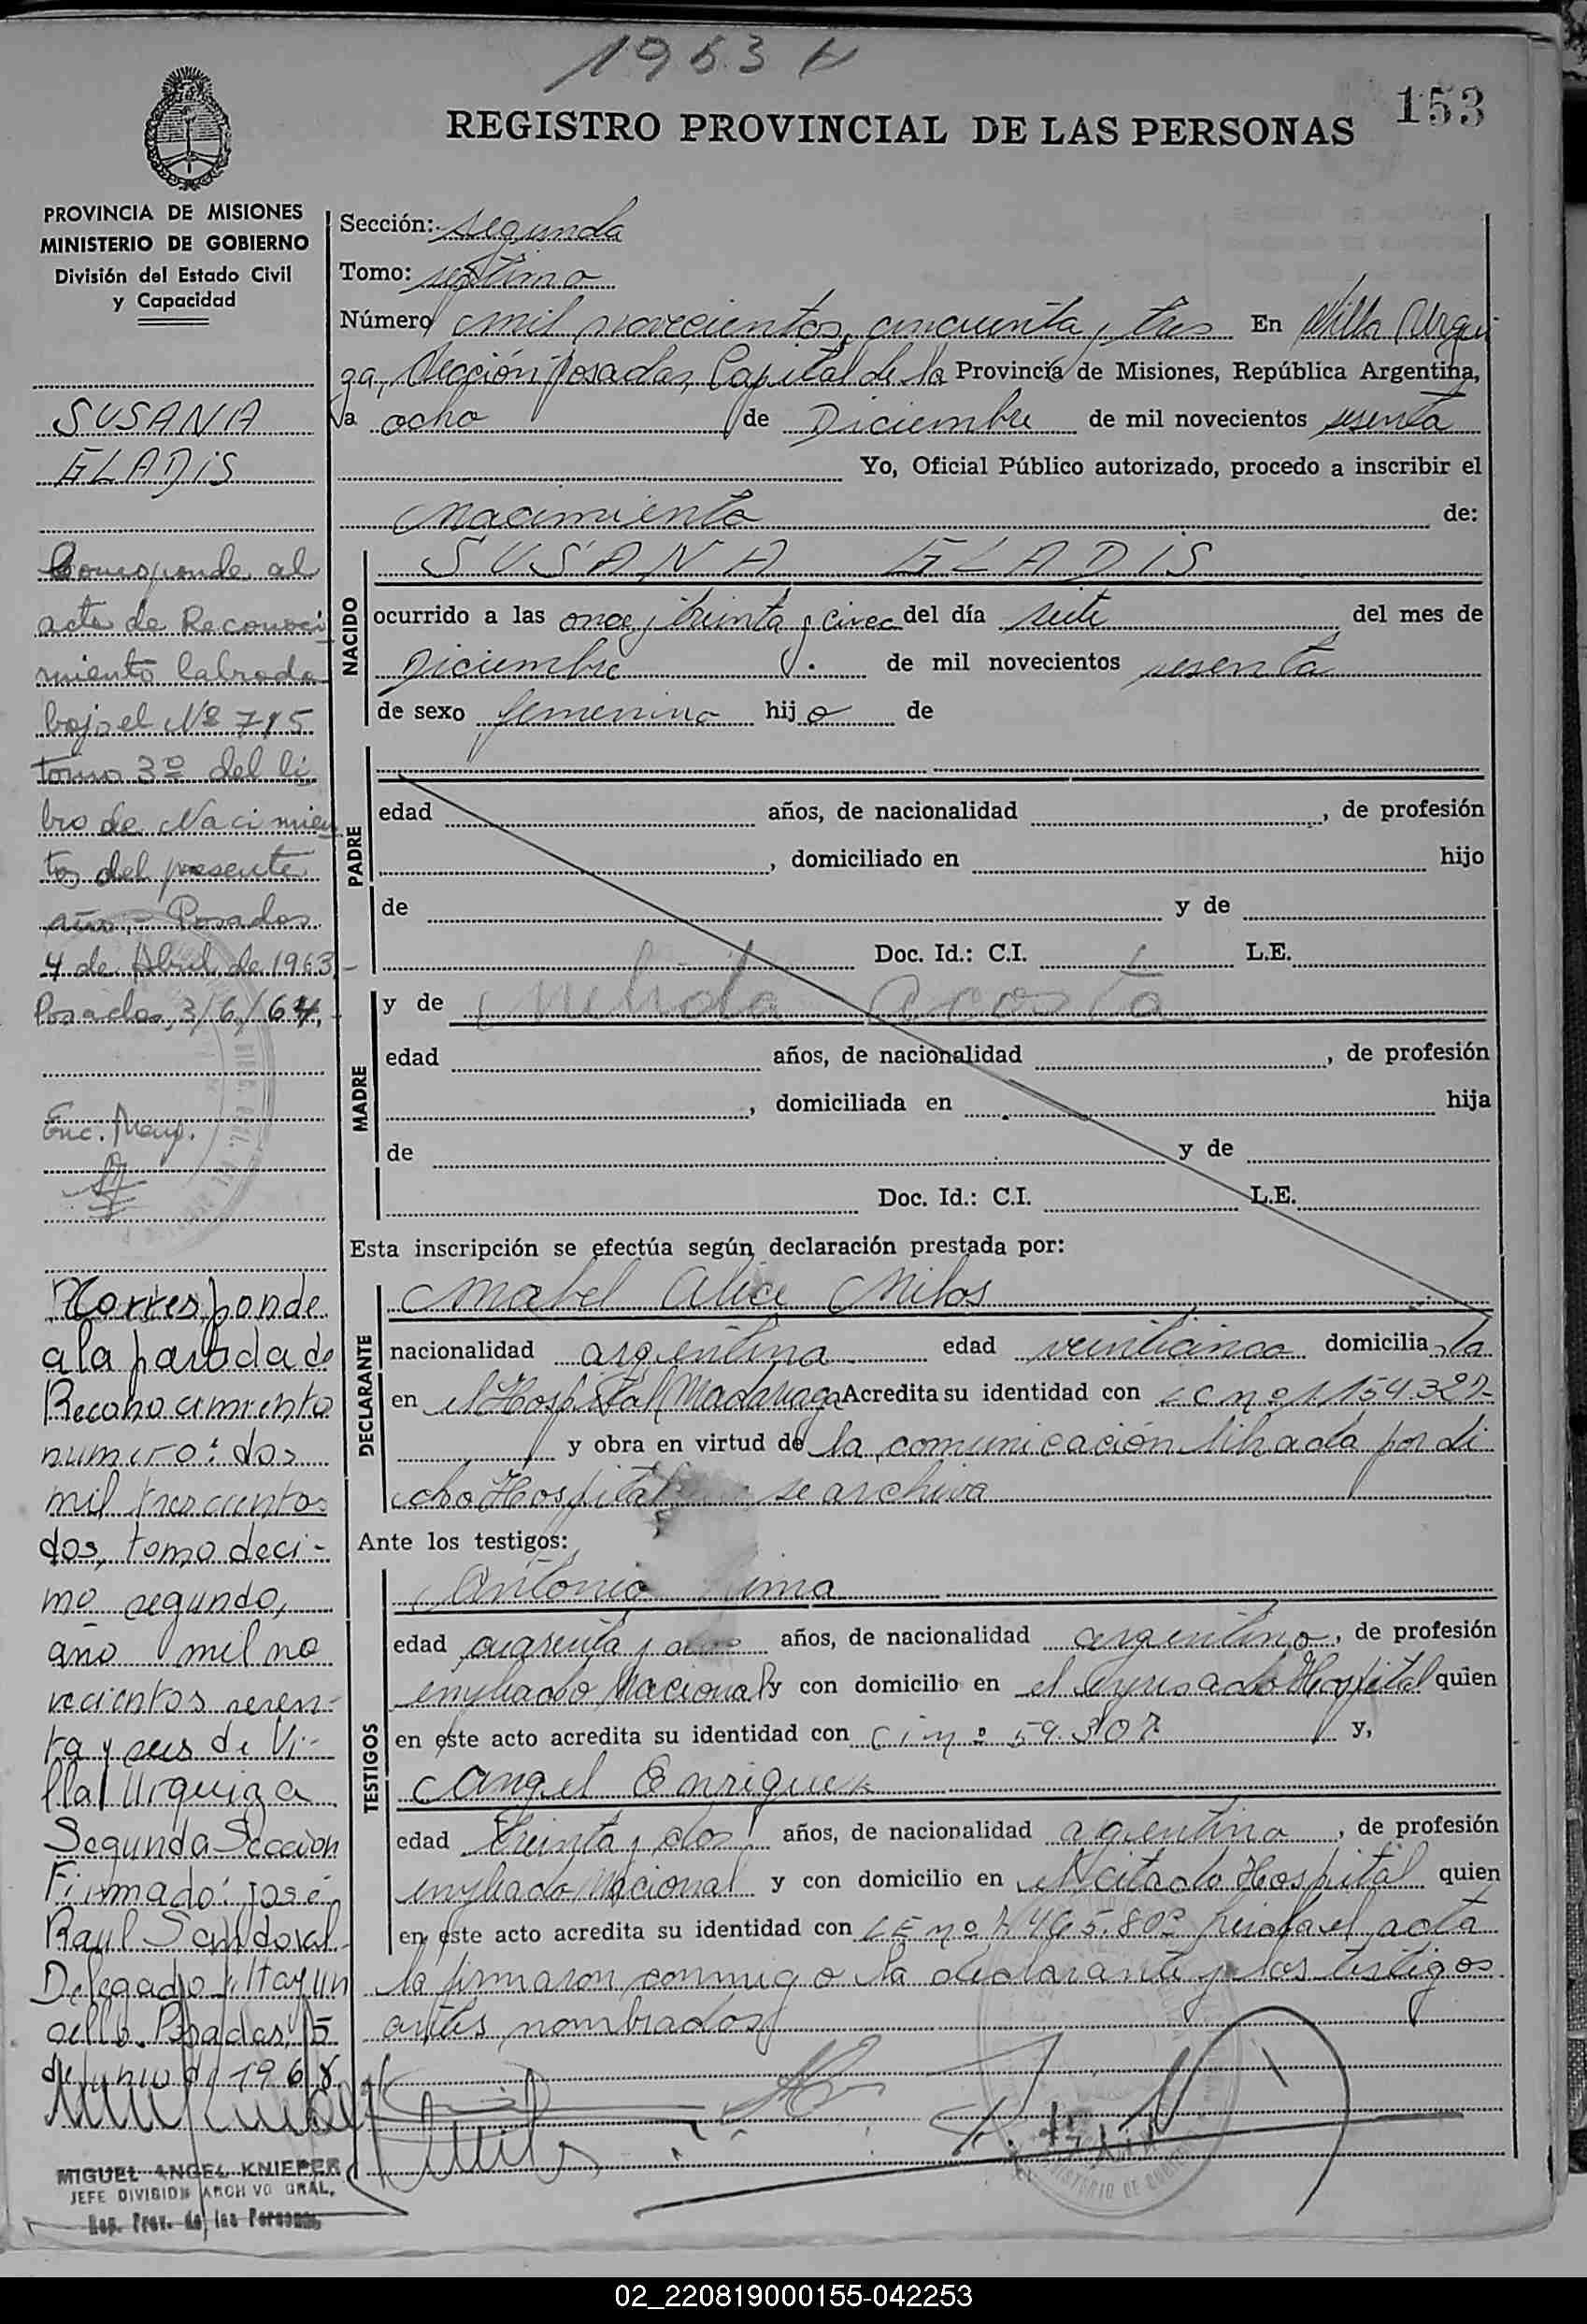 1953 N
153
REGISTRO PROVINCIAL DE LAS PERSONAS
PROVINCIA DE MISIONES
MINISTERIO DE GOBIERNO
División del Estado Civil
y Capacidad
SUSANA
GLADIS
Corresponde al
acta de Reconoci
miento labrada
bajo el Nº 715
tomo 3º del li
bro de Nacimien
tos del presente
año,- Posadas
4 de Abril de 1963.-
Posadas, 3/6/64,-
Enc. Mayo.
Corresponde
a la partida de
Reconocimiento
numero: dos
mil trescientos
dos, tomo deci-
mo segundo,
año mil no
vecientos sesen-
ta y seis de Vi-
lla Urquiza
Segunda Sección
Firmado: José
Raul Sandoval
Delegado
sello. Posadas, 15
de Junio de 1968
MIGUEL ANGEL KNIEPER
JEFE DIVISION ARCHIVO GRAL.
Reg. Prov. de las Personas
Sección: segunda
Tomo: septimo
Número mil novecientos cincuenta y tres En Villa Urqui
za, Sección Posadas, Capital de la Provincia de Misiones, República Argentina,
a ocho de Diciembre de mil novecientos sesenta
Yo, Oficial Público autorizado, procedo a inscribir el
nacimiento de:
NACIDO
SUSANA GLADIS
ocurrido a las once y treinta y cinco del día siete del mes de
Diciembre de mil novecientos sesenta
de sexo femenino hija de
PADRE
edad años, de nacionalidad , de profesión
, domiciliado en hijo
de y de
Doc. Id.: C.I. L.E.
MADRE
y de Acosta
edad años, de nacionalidad , de profesión
, domiciliada en hija
de y de
Doc. Id.: C.I. L.E.
Esta inscripción se efectúa según declaración prestada por:
DECLARANTE
Mabel Alice Milos
nacionalidad argentina edad veinticinco domicilia da
en el Hospital Madariaga Acredita su identidad con LC nº 1.154.327-
y obra en virtud de la comunicación librada por di
cho Hospital se archiva
Ante los testigos:
TESTIGOS
Antonio
edad cuarenta y años, de nacionalidad argentino, de profesión
empleado Nacional y con domicilio en el expresado Hospital quien
en este acto acredita su identidad con C i nº 59.307 y,
Angel Enriquez
edad treinta y dos años, de nacionalidad argentino, de profesión
empleado Nacional y con domicilio en el citado Hospital quien
en este acto acredita su identidad con LE nº 7.465.802 leida el acta
la firmaron conmigo la declarante y los testigos
antes nombrados
02_220819000155-042253